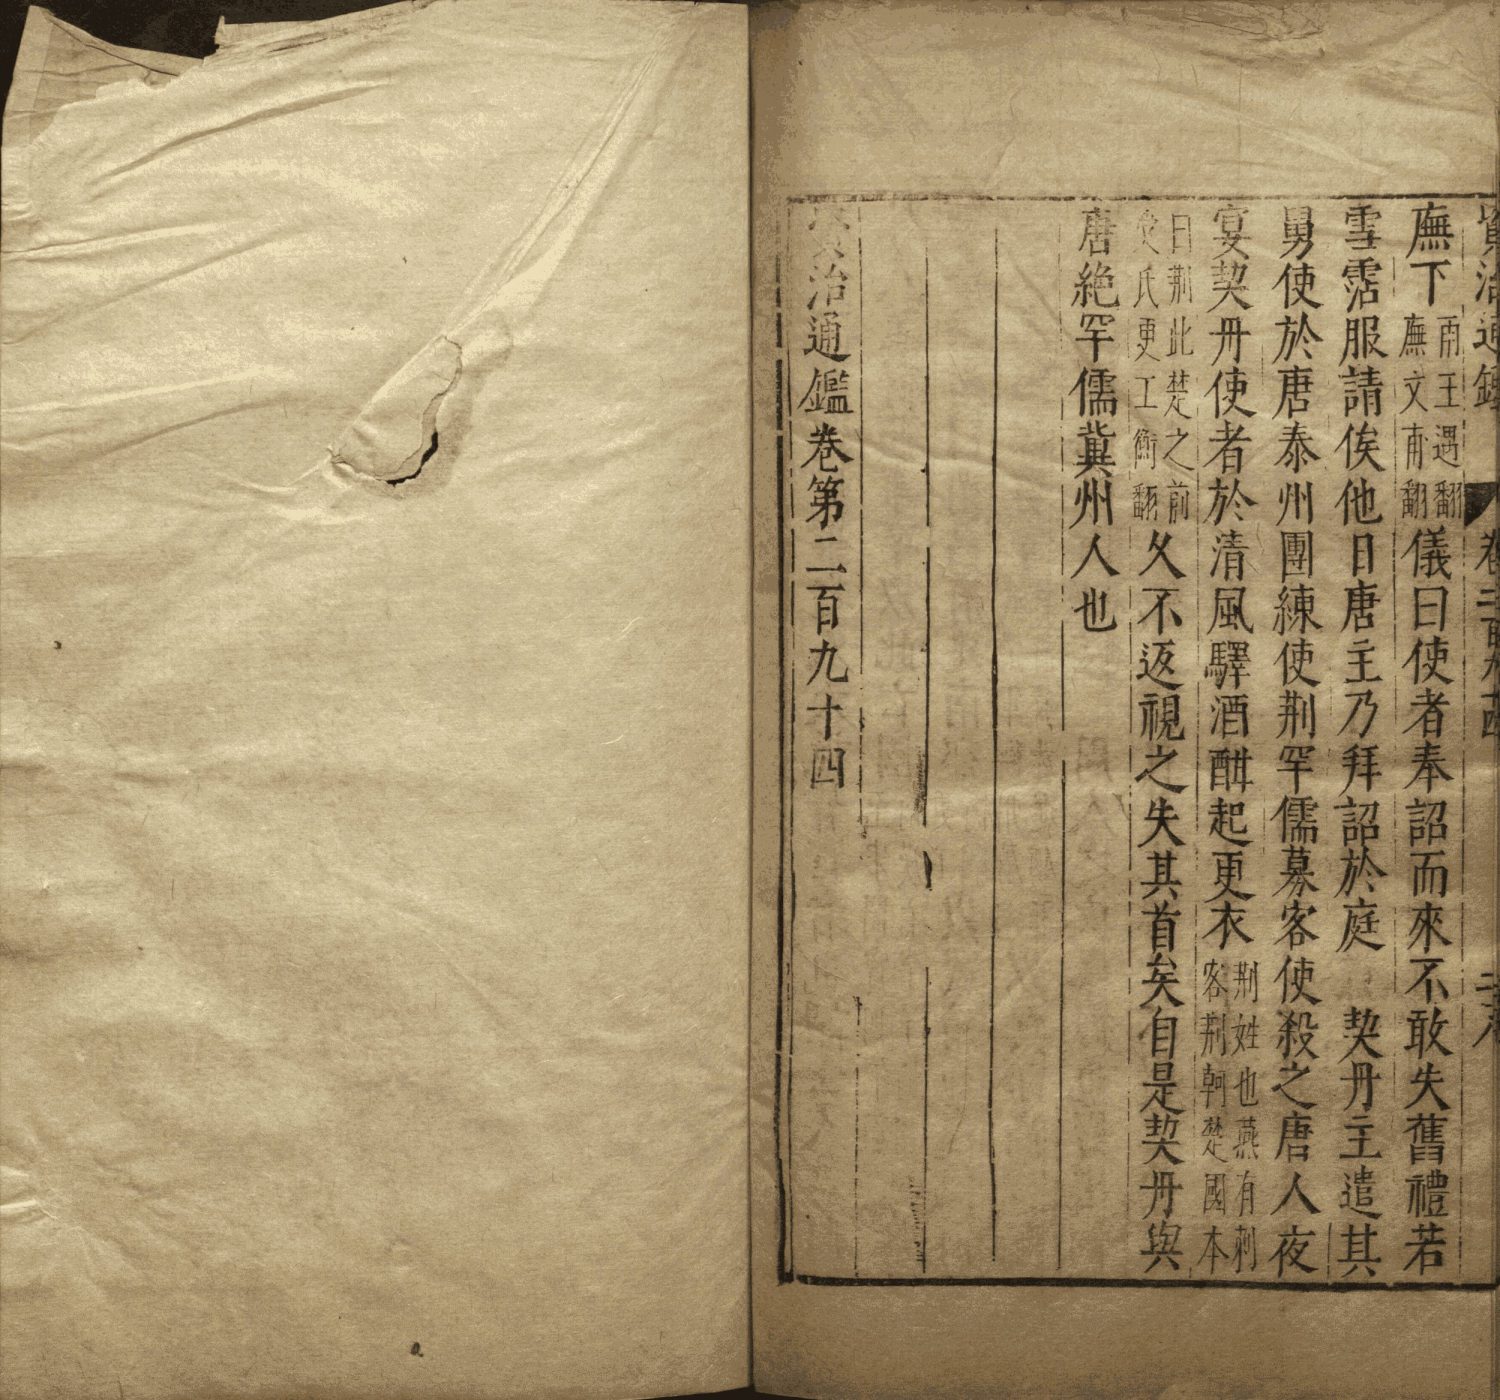 資治通鑑 卷二百九十四 二十八
廡下雨王遇翻廡文甫翻儀曰使者奉詔而來不敢失舊禮若
雪霑服請俟他日唐主乃拜詔於庭 契丹主遣其
舅使於唐泰州團練使荆罕儒募客使殺之唐人夜
宴契丹使者於清風驛酒酣起更衣荆姓也燕有刺客荆軻楚國本
曰荆此楚之前受氏更工衡翻久不返視之失其首矣自是契丹與
唐絶罕儒冀州人也
資治通鑑卷第二百九十四